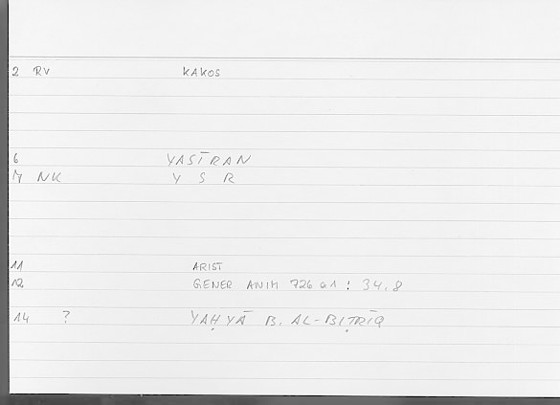 2 RV KAKOS
6 YASĪRAN
7 NK Y S R
11 ARIST
12 GENER ANIM 726 a1 : 34.8
14 ? YAḤYĀ B. AL-BIṬRĪQ